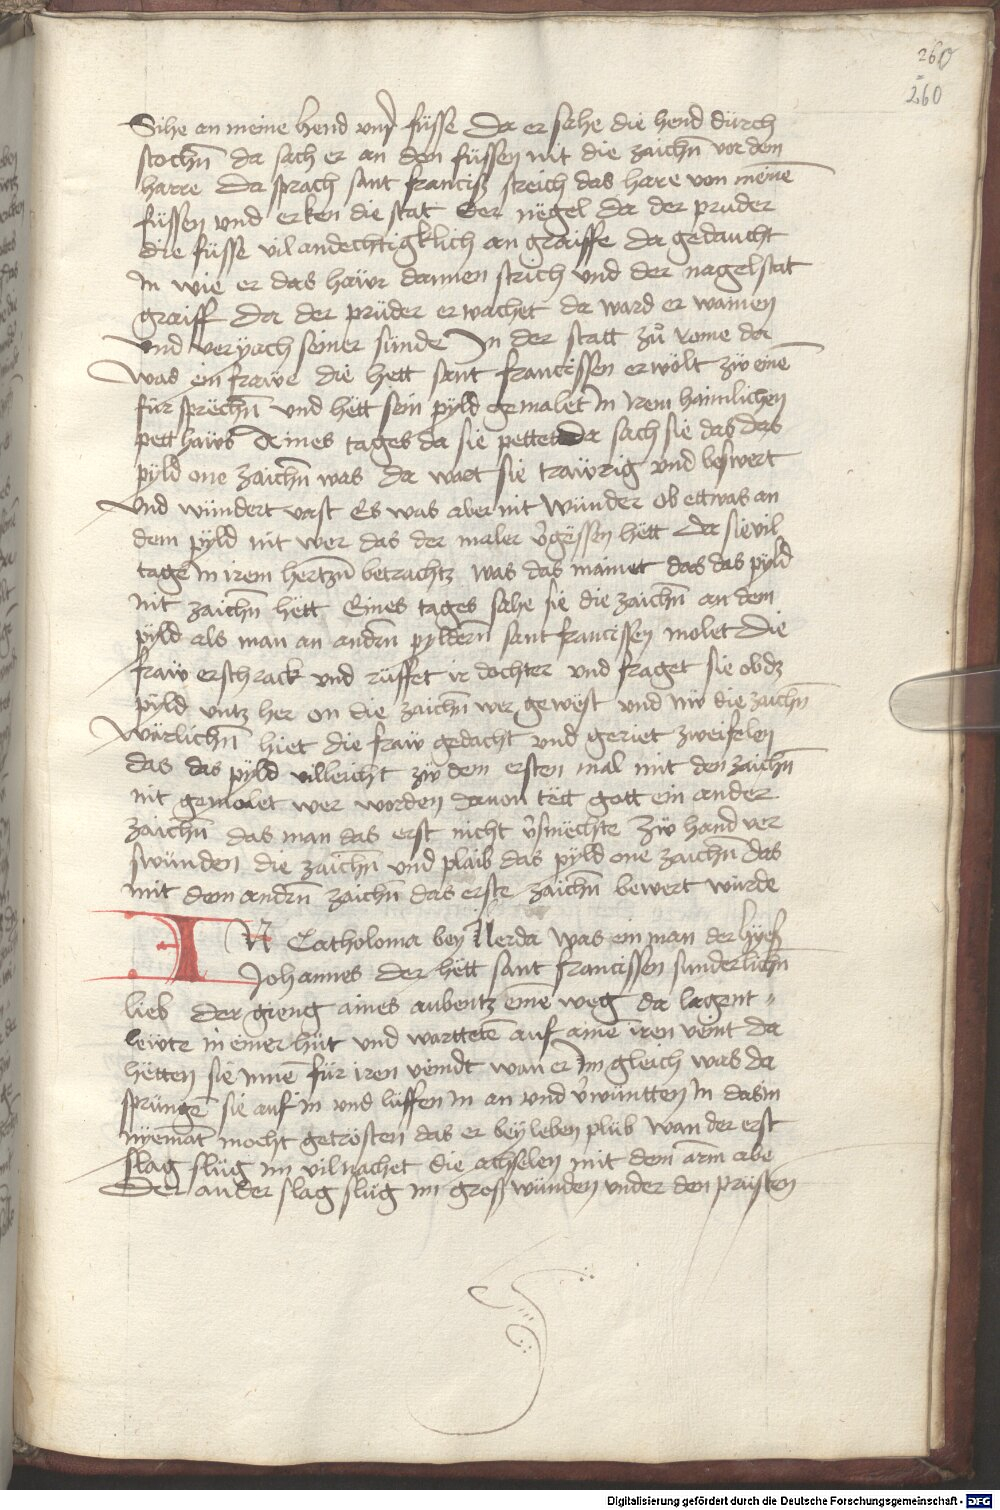 260
260
Sihe an meine hend vnd füsse Da er sahe die hend dürch
stochn̄ da sach er an den füssen nit die zaichn̄ vor dem
harre Da sprach sant francisß streich das hare von meinē
füssen und erken die stat der negel da der pruder
die füsse vil andechtigklich an graiffe da gedaucht
In wie er das hawr dannen strich vnd der nagel stat
graiff Da der prüder erwachet da ward er wainen
vnd veryach seiner sünde In der statt zů rome da
was ein frawe die hett sant francissen erwölt zw einē
für sprechn̄ vnd hett sein pyld gemalet In irem haimlichen
pett haws Aines tages da sie pettet da sach sie das das
pyld one zaichn̄ was da wart sie trawrig vnd beswert
vnd wündert vast Es was aber nit wünder ob ettwas an
dem pyld nit wer das der maler v̓gessen hett Da sie vil
tage In irem hertzn̄ betrachtz was das mainet das das pyld
nit zaichn̄ hett Eines tages sahe sie die zaichn̄ an dem
pyld als man an andrn̄ pyldern̄ sant francissen molet Die
fraw erschrack vnd rüffet ir dochter vnd fraget sie ob dz
pyld vntz her on die zaichn̄ wer gewest vnd nw die zaichn̄
Warlichn̄ hiet die fraw gedacht vnd geriet zweifelen
das das pyld villeicht zw dem ersten mal mit den zaichn̄
nit gemolet wer worden dauon tett gott ein ander
zaichn̄ das man das erst nicht v̓smechte zw hand ver
swünden die zaichn̄ vnd plaib das pyld one zaichn̄ das
mit dem andrn̄ zaichn̄ das erste zaichn̄ bewert würde
IN Catholoma bey Ilerda was ein man der hyesß
Johannes der hett sant francissen sunderlichn̄
lieb der gieng aines aubentz einē weg da lagent
lewte in einer hüt vnd wartteten auf ainē iren veint da
hetten sie Innē für iren veindt wan er im gleich was da
sprüngē sie auf in vnd lüffen in an vnd v̓wüntten In das in
nyemāt mocht getrösten das er bey leben plib wan der erst
slag slüg im vil nachet die achselen mit dem arm abe
Der ander slag slüg im gross wünden vnder den prüsten
Digitalisierung gefördert durch die Deutsche Forschungsgemeinschaft - DFG